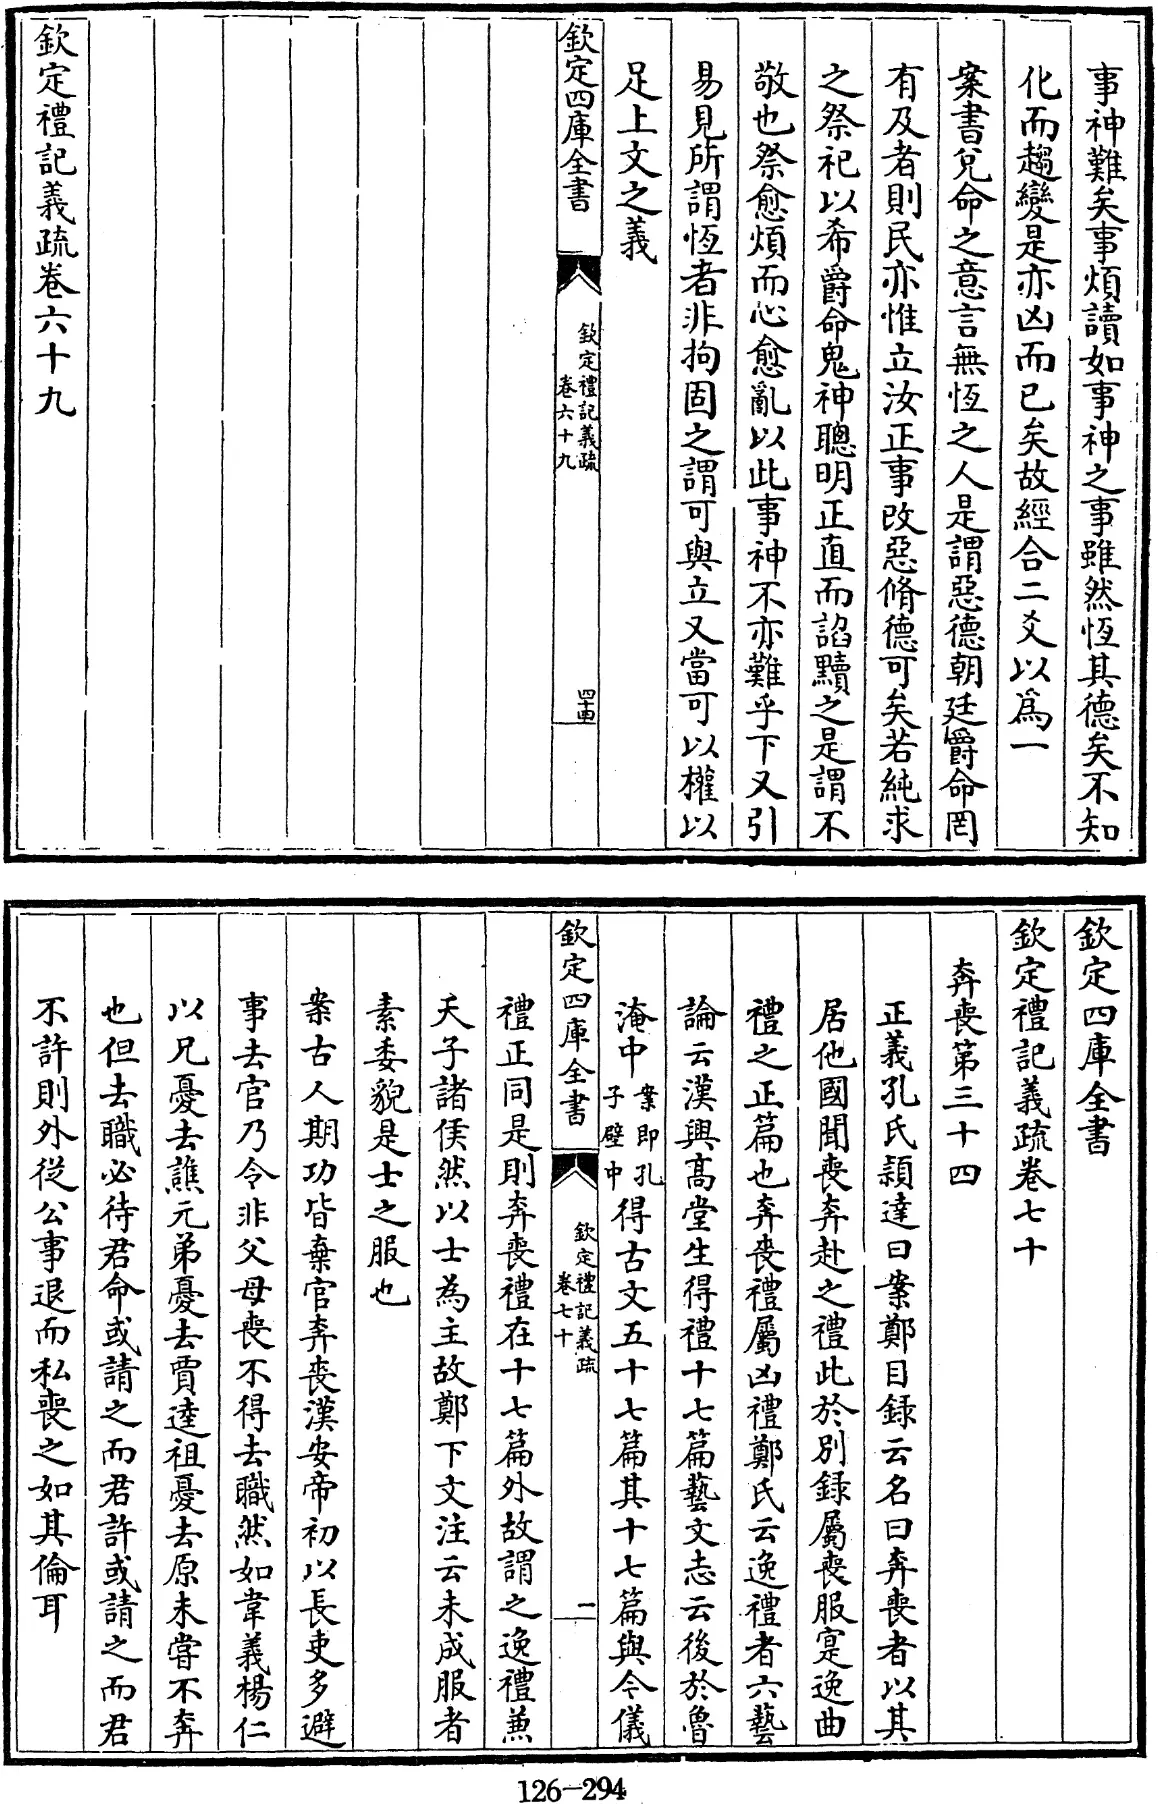 事神難矣事煩讀如事神之事雖然恆其德矣不知
化而趨變是亦凶而已矣故經合二爻以爲一
案書兌命之意言無恆之人是謂惡德朝廷爵命罔
有及者則民亦惟立汝正事改惡脩德可矣若純求
之祭祀以希爵命鬼神聰明正直而諂黷之是謂不
敬也祭愈煩而心愈亂以此事神不亦難乎下又引
易見所謂恆者非拘固之謂可與立又當可以權以
足上文之義
欽定四庫全書
欽定禮記義疏
卷六十九
四十四
欽定禮記義疏卷六十九
欽定四庫全書
欽定禮記義疏卷七十
奔喪第三十四
正義孔氏穎達曰案鄭目録云名曰奔喪者以其
居他國聞喪奔赴之禮此於別録屬喪服寔逸曲
禮之正篇也奔喪禮屬凶禮鄭氏云逸禮者六藝
論云漢興髙堂生得禮十七篇藝文志云後於魯
淹中案即孔子壁中得古文五十七篇其十七篇與今儀
禮正同是則奔喪禮在十七篇外故謂之逸禮兼
天子諸侯然以士為主故鄭下文注云未成服者
素委貌是士之服也
案古人期功皆棄官奔喪漢安帝初以長吏多避
事去官乃令非父母喪不得去職然如韋義楊仁
以兄憂去譙元弟憂去賈逵祖憂去原未嘗不奔
也但去職必待君命或請之而君許或請之而君
不許則外從公事退而私喪之如其倫耳
欽定四庫全書
欽定禮記義疏
卷七十
一
126-294